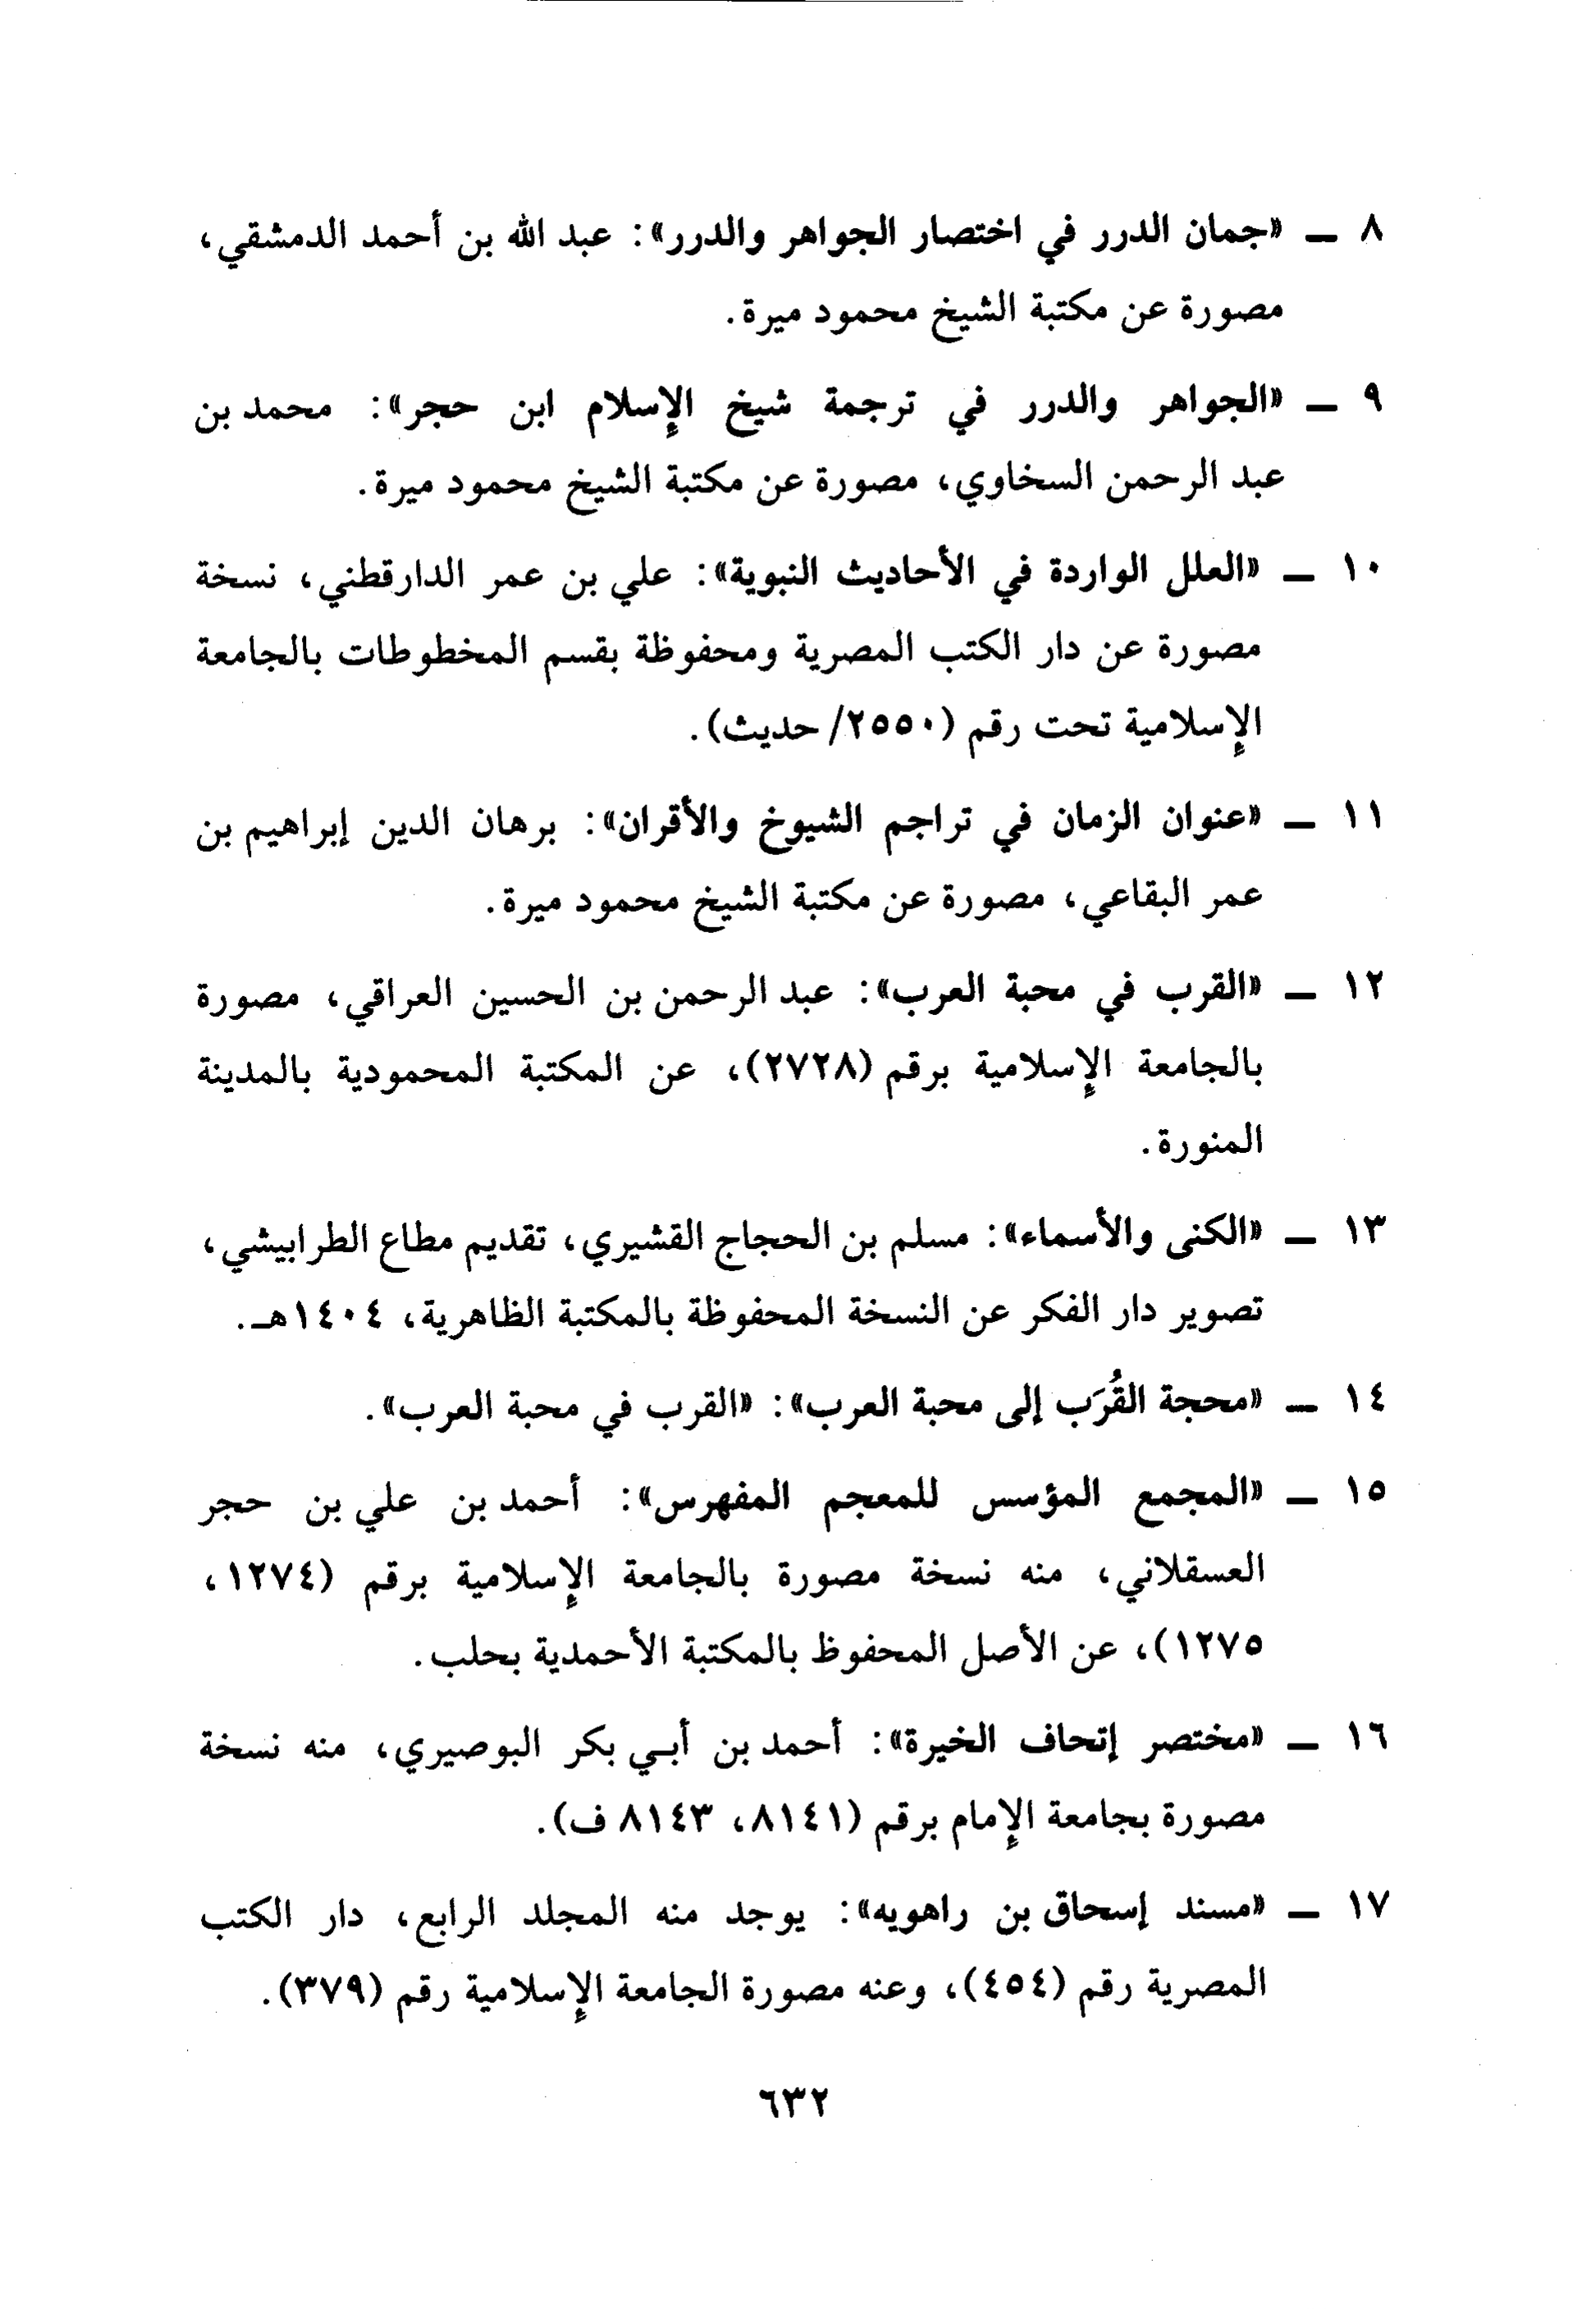 ٨ ــ «جمان الدرر في اختصار الجواهر والدرر»: عبد الله بن أحمد الدمشقي،
مصورة عن مكتبة الشيخ محمود ميرة.
٩ ــ «الجواهر والدرر في ترجمة شيخ الإسلام ابن حجر»: محمد بن
عبد الرحمن السخاوي، مصورة عن مكتبة الشيخ محمود ميرة.
١٠ ــ «العلل الواردة في الأحاديث النبوية»: علي بن عمر الدارقطني، نسخة
مصورة عن دار الكتب المصرية ومحفوظة بقسم المخطوطات بالجامعة
الإسلامية تحت رقم (٢٥٥٠/ حديث).
١١ ــ «عنوان الزمان في تراجم الشيوخ والأقران»: برهان الدين إبراهيم بن
عمر البقاعي، مصورة عن مكتبة الشيخ محمود ميرة.
١٢ ــ «القرب في محبة العرب»: عبد الرحمن بن الحسين العراقي، مصورة
بالجامعة الإسلامية برقم (٢٧٢٨)، عن المكتبة المحمودية بالمدينة
المنورة.
١٣ ــ «الكنى والأسماء»: مسلم بن الحجاج القشيري، تقديم مطاع الطرابيشي،
تصوير دار الفكر عن النسخة المحفوظة بالمكتبة الظاهرية، ١٤٠٤هـ.
١٤ ــ «محجة القُرَب إلى محبة العرب»: «القرب في محبة العرب».
١٥ ــ «المجمع المؤسس للمعجم المفهرس»: أحمد بن علي بن حجر
العسقلاني، منه نسخة مصورة بالجامعة الإسلامية برقم (١٢٧٤،
١٢٧٥)، عن الأصل المحفوظ بالمكتبة الأحمدية بحلب.
١٦ ــ «مختصر إتحاف الخيرة»: أحمد بن أبـي بكر البوصيري، منه نسخة
مصورة بجامعة الإمام برقم (٨١٤١، ٨١٤٣ ف).
١٧ ــ «مسند إسحاق بن راهويه»: يوجد منه المجلد الرابع، دار الكتب
المصرية رقم (٤٥٤)، وعنه مصورة الجامعة الإسلامية رقم (٣٧٩).
٦٣٢